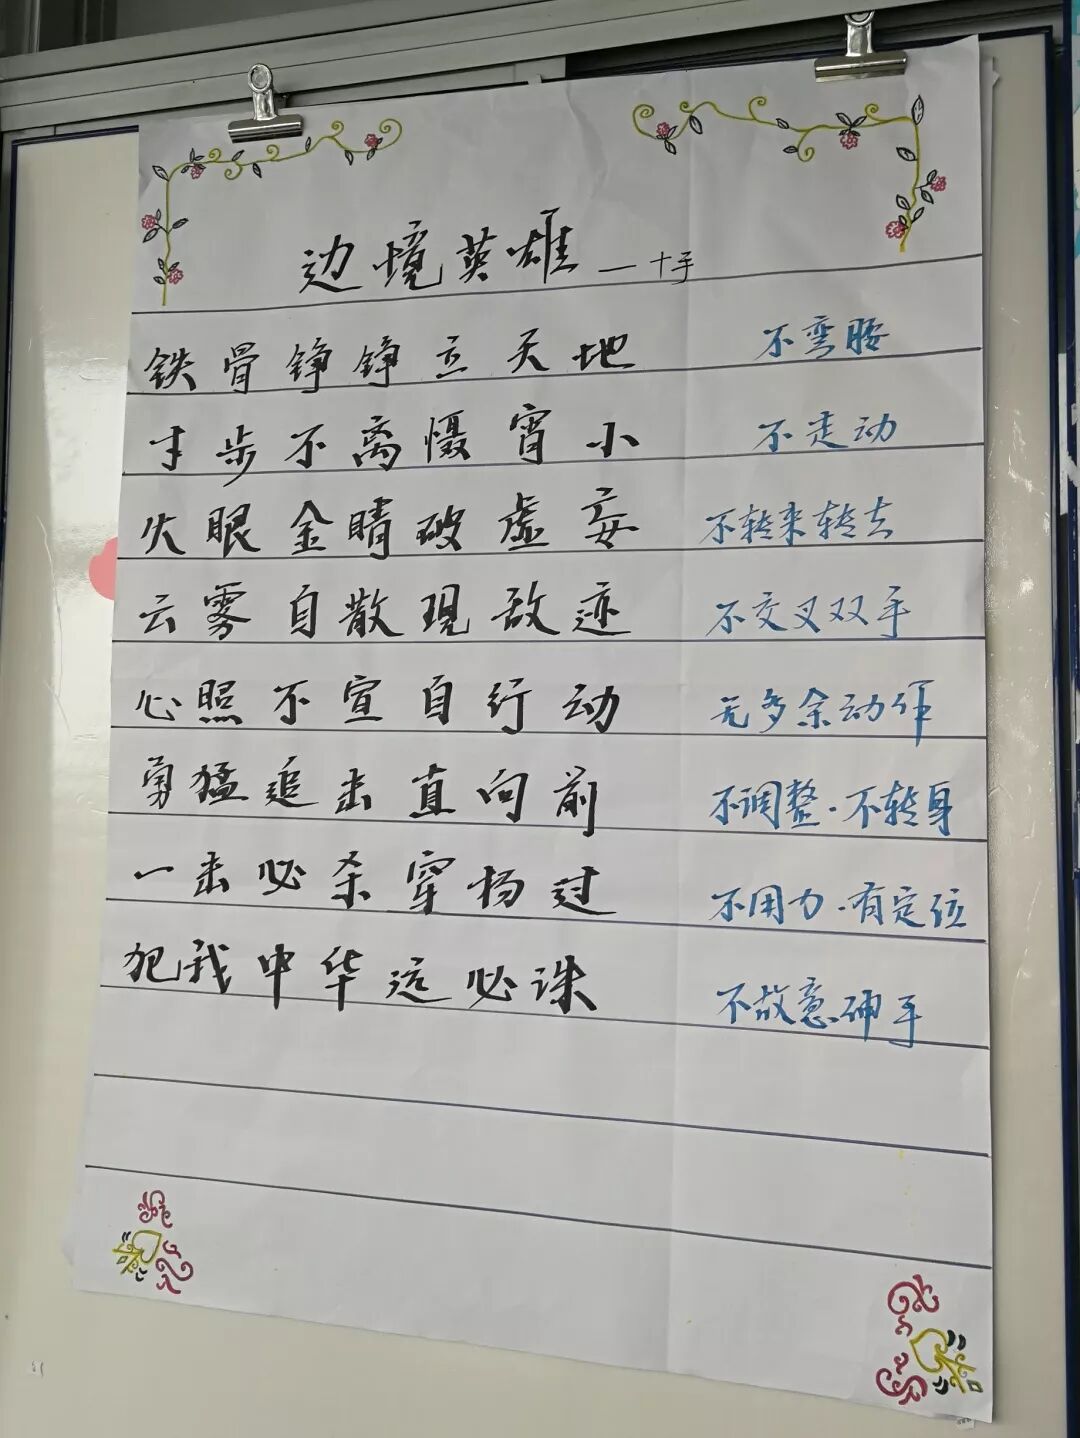 边境英雄——十手
铁骨铮铮立天地 不弯腰
寸步不离慑宵小 不走动
火眼金睛破虚妄 不转来转去
云雾自散现敌迹 不交叉双手
心照不宣自行动 无多余动作
勇猛追击直向前 不调整.不转身
一击必杀穿杨过 不用力.有定位
犯我中华远必诛 不故意砷手